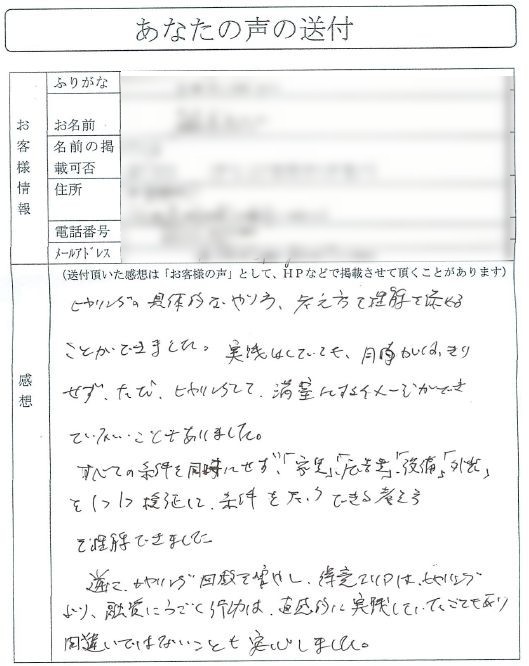 あなたの声の送付
お客様情報
ふりがな
お名前
名前の掲
載可否
住所
電話番号
メールアドレス
感想
(送付頂いた感想は「お客様の声」として、HPなどで掲載させて頂くことがあります)
ヒヤリングの具体的なやり方、考え方で理解を深める
ことができました。実践はしていても、目的がはっきり
せず、ただ、ヒヤリングして、満室にするイメージができ
ていないこともありました。
すべての条件を同時にせず、「家賃」、「広告費」、「設備」、「外観」
を1つ1つ検証し、条件を できる考え方
を理解できました
逆に、ヒヤリング回数を増やし、得意エリアは、ヒヤリング
より、融資にうごく行動は、直感的に実践していたこともあり
間違いではないことも実感しました。